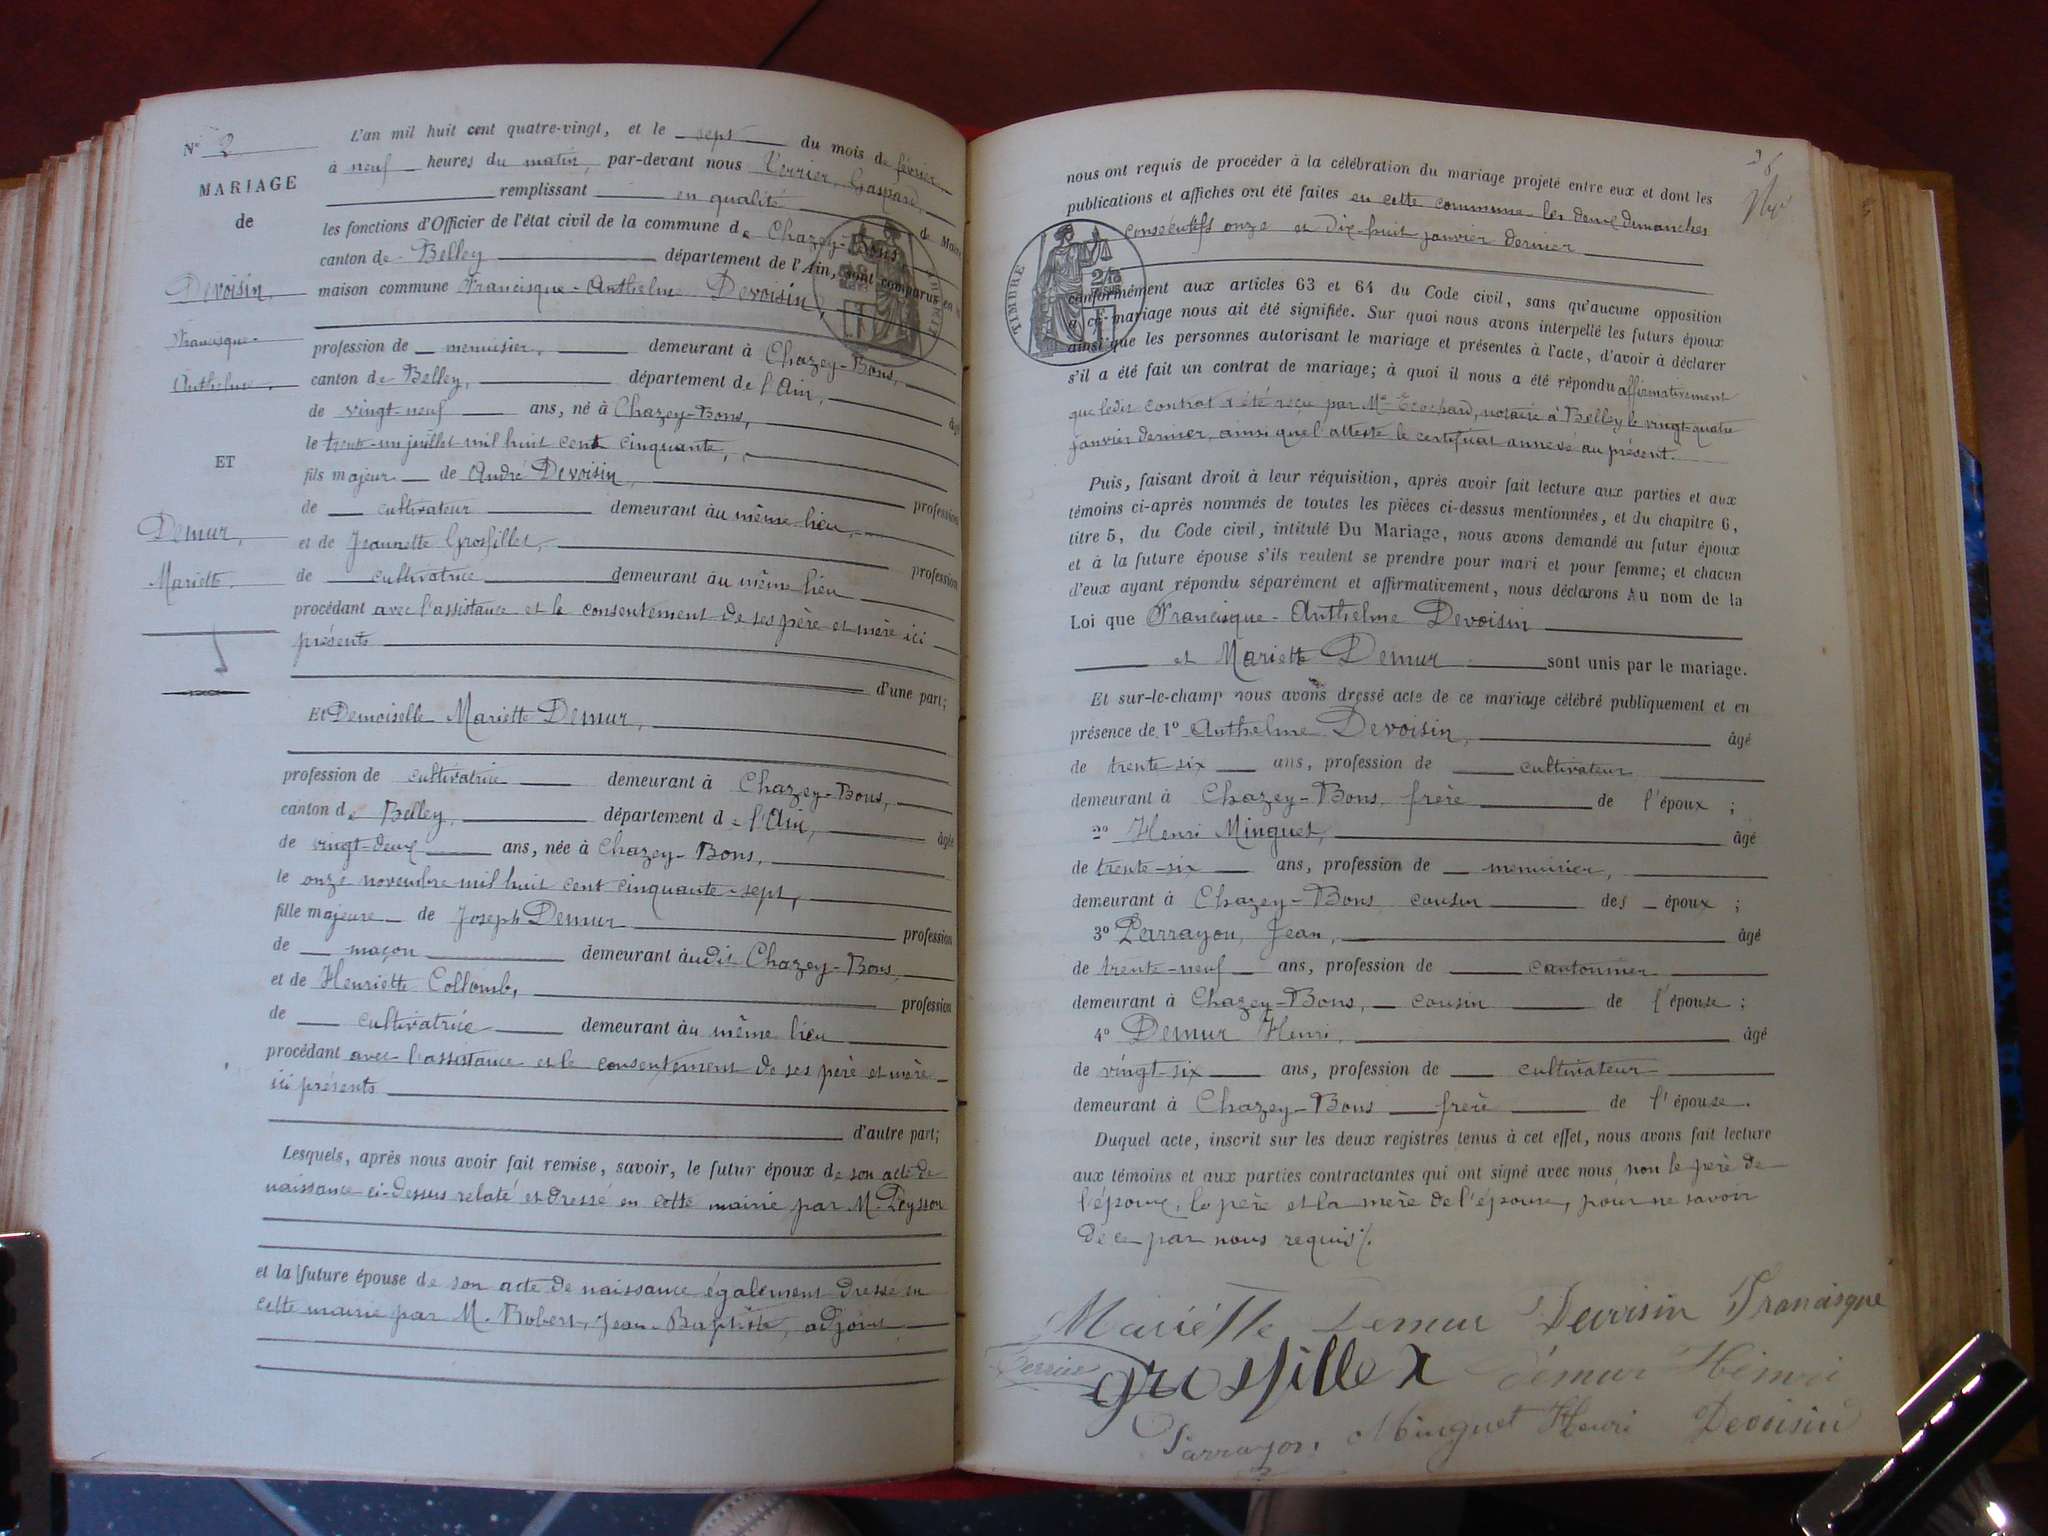 N° 2
MARIAGE
de
Devoisin,
Francisque-
Anthelme,
ET
Demur,
Mariette.
L'an mil huit cent quatre-vingt, et le sept du mois de février
à neuf heures du matin, par-devant nous Verrier, Gaspard,
remplissant en qualité de Maire
les fonctions d'Officier de l'état civil de la commune de Chazey-Bons
canton de Belley département de l'Ain, sont comparus en la
maison commune Francisque-Anthelme Devoisin,
profession de menuisier, demeurant à Chazey-Bons,
canton de Belley, département de l'Ain, âgé
de vingt-neuf ans, né à Chazey-Bons,
le trente-un juillet mil huit cent cinquante,
fils majeur de André Devoisin, profession
de cultivateur demeurant au même lieu,
et de Jeannette Grosfillex, profession
de cultivatrice demeurant au même lieu
procédant avec l'assistance et le consentement de ses père et mère ici
présents
d'une part;
Et Demoiselle Mariette Demur,
profession de cultivatrice demeurant à Chazey-Bons,
canton de Belley, département de l'Ain, âgée
de vingt-deux ans, née à Chazey-Bons,
le onze novembre mil huit cent cinquante-sept,
fille majeure de Joseph Demur profession
de maçon demeurant audit Chazey-Bons,
et de Henriette Collomb, profession
de cultivatrice demeurant au même lieu
procédant avec l'assistance et le consentement de ses père et mère
ici présents
d'autre part;
Lesquels, après nous avoir fait remise, savoir, le futur époux de son acte de
naissance ci-dessus relaté et dressé en cette mairie par M. Peysson
et la future épouse de son acte de naissance également dressé en
cette mairie par M. Robert, Jean-Baptiste, adjoint
nous ont requis de procéder à la célébration du mariage projeté entre eux et dont les
publications et affiches ont été faites en cette commune les deux dimanches
consécutifs onze et dix-huit janvier dernier
TIMBRE
conformément aux articles 63 et 64 du Code civil, sans qu'aucune opposition
à ce mariage nous ait été signifiée. Sur quoi nous avons interpellé les futurs époux
ainsi que les personnes autorisant le mariage et présentes à l'acte, d'avoir à déclarer
s'il a été fait un contrat de mariage; à quoi il nous a été répondu affirmativement
que ledit contrat a été reçu par Me notaire à Belley le vingt-quatre
janvier dernier, ainsi que l'atteste le certificat annexé au présent.
Puis, faisant droit à leur réquisition, après avoir fait lecture aux parties et aux
témoins ci-après nommés de toutes les pièces ci-dessus mentionnées, et du chapitre 6,
titre 5, du Code civil, intitulé Du Mariage, nous avons demandé au futur époux
et à la future épouse s'ils veulent se prendre pour mari et pour femme; et chacun
d'eux ayant répondu séparément et affirmativement, nous déclarons Au nom de la
Loi que Francisque-Anthelme Devoisin
et Mariette Demur sont unis par le mariage.
Et sur-le-champ nous avons dressé acte de ce mariage célébré publiquement et en
présence de 1° Anthelme Devoisin, âgé
de trente-six ans, profession de cultivateur
demeurant à Chazey-Bons frère de l'époux ;
2° Henri Minguet, âgé
de trente-six ans, profession de menuisier,
demeurant à Chazey-Bons cousin des époux ;
3° Parrayon, Jean, âgé
de trente-neuf ans, profession de cantonnier
demeurant à Chazey-Bons, cousin de l'épouse ;
4° Demur Henri, âgé
de vingt-six ans, profession de cultivateur
demeurant à Chazey-Bons frère de l'épouse.
Duquel acte, inscrit sur les deux registres tenus à cet effet, nous avons fait lecture
aux témoins et aux parties contractantes qui ont signé avec nous, non le père de
l'époux, le père et la mère de l'épouse, pour ne savoir
de ce par nous requis.
Mariette Demur Devoisin Francisque
Verrier grosfillex Démur Henri
Parrayon, Minguet Henri Devoisin